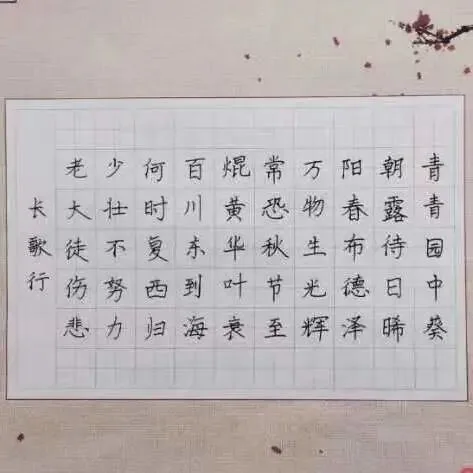 青青园中葵
朝露待日晞
阳春布德泽
万物生光辉
常恐秋节至
焜黄华叶衰
百川东到海
何时复西归
少壮不努力
老大徒伤悲
长歌行